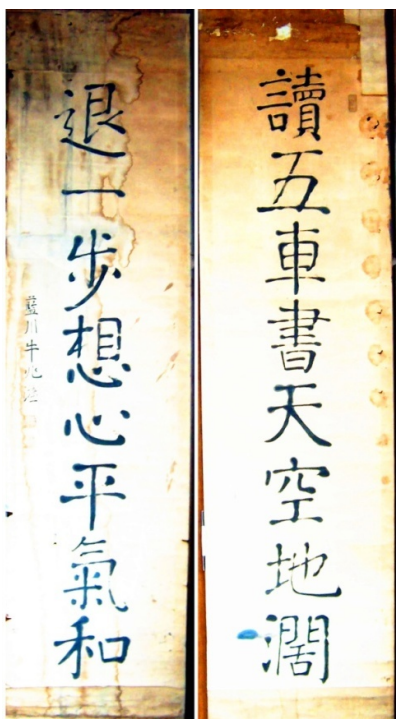 讀五車書天空地濶
退一步想心平氣和
藍川牛化